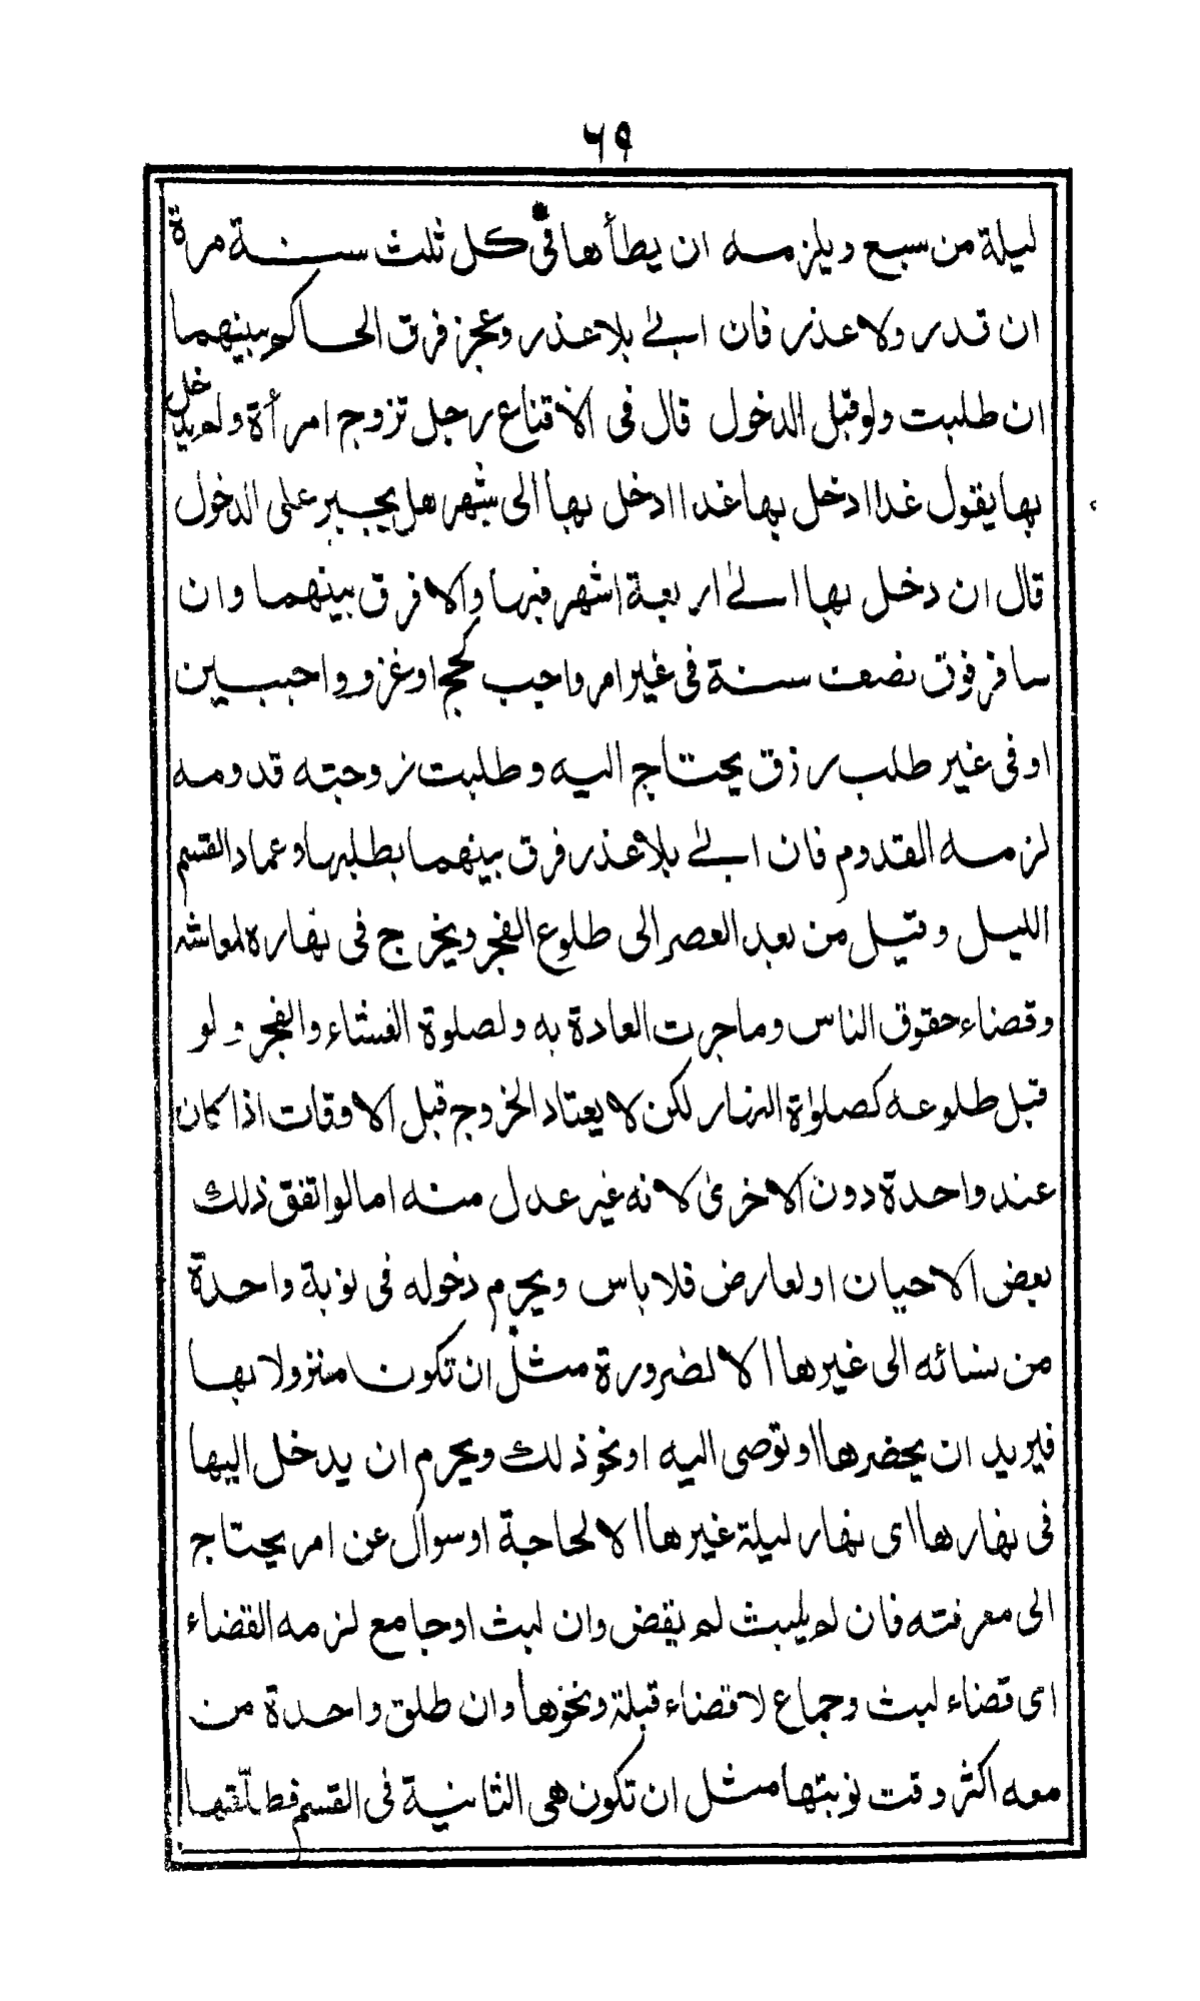 ٦٩
ليلة من سبع ويلزمه ان يطأها فى كل ثلث سنة مرة
ان قدر ولا عذر فان ابى بلا عذر وعجز فرق الحاكم بينهما
ان طلبت ولو قبل الدخول قال فى الاقناع رجل تزوج امرأة ولم يدخل
بها يقول غدا ادخل بها غدا ادخل بها الى شهر هل يجبر على الدخول
قال ان دخل بها الى اربعة اشهر فبها والا فرق بينهما وان
سافر فوق نصف سنة فى غير امر واجب كحج او غزو واجبين
او فى غير طلب رزق يحتاج اليه وطلبت زوجته قدومه
لزمه القدوم فان ابى بلا عذر فرق بينهما بطلبها وعماد القسم
الليل وقيل من بعد العصر الى طلوع الفجر ويخرج فى نهاره لمعاشه
وقضاء حقوق الناس وما جرت العادة به ولصلوة العشاء والفجر ولو
قبل طلوعه كصلوة النهار لكن لا يعتاد الخروج قبل الاوقات اذا كان
عند واحدة دون الاخرى لانه غير عدل منه اما لو اتفق ذلك
بعض الاحيان او لعارض فلا باس ويحرم دخوله فى نوبة واحدة
من نسائه الى غيرها الا لضرورة مثل ان تكون منزولا بها
فيريد ان يحضرها او توصى اليه او نحو ذلك ويحرم ان يدخل اليها
فى نهارها اى نهار ليلة غيرها الا لحاجة او سوال عن امر يحتاج
الى معرفته فان لم يلبث لم يقض وان لبث او جامع لزمه القضاء
اى قضاء لبث وجماع لا قضاء قبلة ونحوها وان طلق واحدة من
معه اكثر وقت نوبتها مثل ان تكون هى الثانية فى القسم فطلّقها